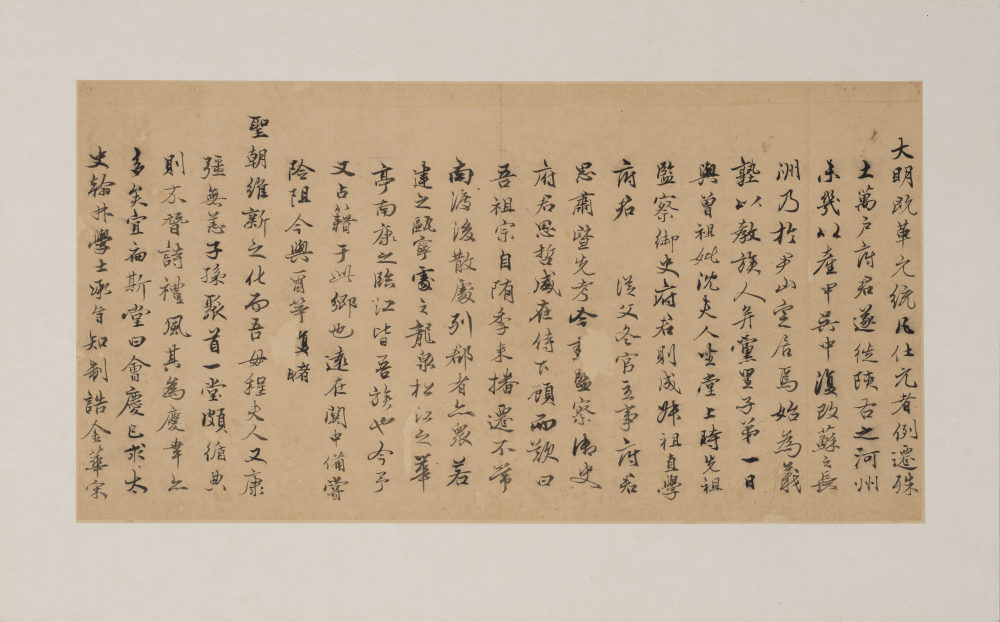 大明既革元統凡仕元者例遷殊
土萬戶府君遂徙陝右之河州
未幾以產甲吳中復改蘇之長
洲乃於尹山定居焉始為義
塾以教族人并黨里子弟一日
與曾祖妣沈夫人坐堂上時先祖
監察御史府君則成 祖直學
府君 從父冬官主事府君
思肅暨先考 監察御史
府君思哲咸在侍下顧而歎曰
吾祖宗自隋季來播遷不常
南渡後散處列郡者亦眾若
建之甌寧處之龍泉松江之華
亭南康之臨江皆吾族也今予
又占籍于此鄉也遠在關中備嘗
險阻今與爾等复睹
聖朝維新之化而吾母程夫人又康
彊無恙子孫聚首一堂頗循典
則亦簪詩禮風其為慶幸亦
多矣宜扁斯堂曰會慶已求太
史翰林學士承旨知制誥金華宋